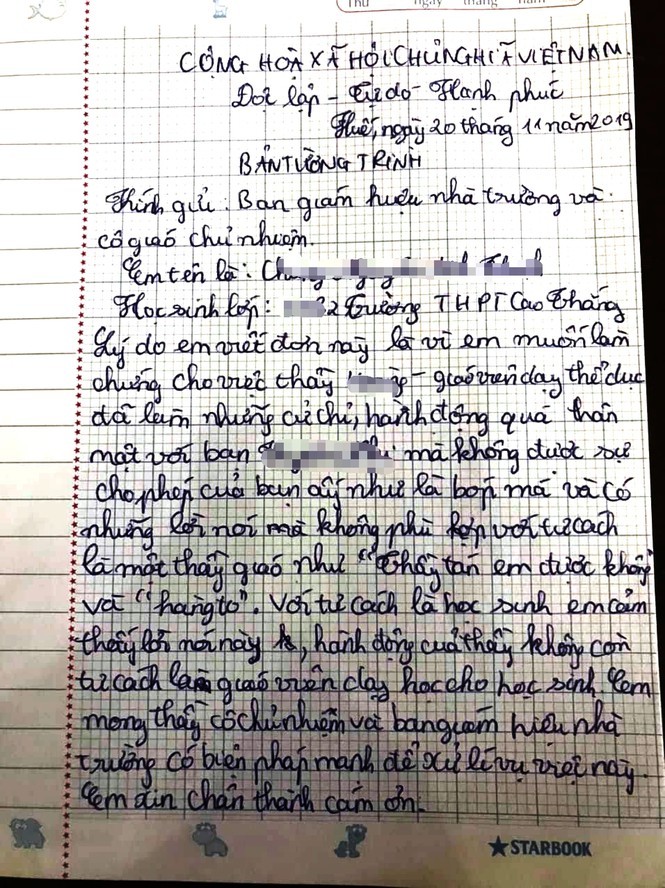 Thứ ngày tháng năm
CỘNG HOÀ XÃ HỘI CHỦ NGHĨA VIỆT NAM.
Độc lập - Tự do - Hạnh phúc
Huế, ngày 20 tháng 11 năm 2019
BẢN TƯỜNG TRÌNH
Kính gửi: Ban giám hiệu nhà trường và
cô giáo chủ nhiệm.
Em tên là:
Học sinh lớp: Trường THPT Cao Thắng
Lý do em viết đơn này là vì em muốn làm
chứng cho việc thầy - giáo viên dạy thể dục
đã làm những cử chỉ, hành động quá thân
mật với bạn mà không được sự
cho phép của bạn ấy như là bóp má và có
những lời nói mà không phù hợp với tư cách
là một thầy giáo như "Thầy tán em được không"
và "hàng to". Với tư cách là học sinh em cảm
thấy lời nói này, hành động của thầy không còn
tư cách làm giáo viên dạy học cho học sinh. Em
mong thầy cô chủ nhiệm và ban giám hiệu nhà
trường có biện pháp mạnh để xử lí vụ việc này.
Em xin chân thành cám ơn.
★STARBOOK